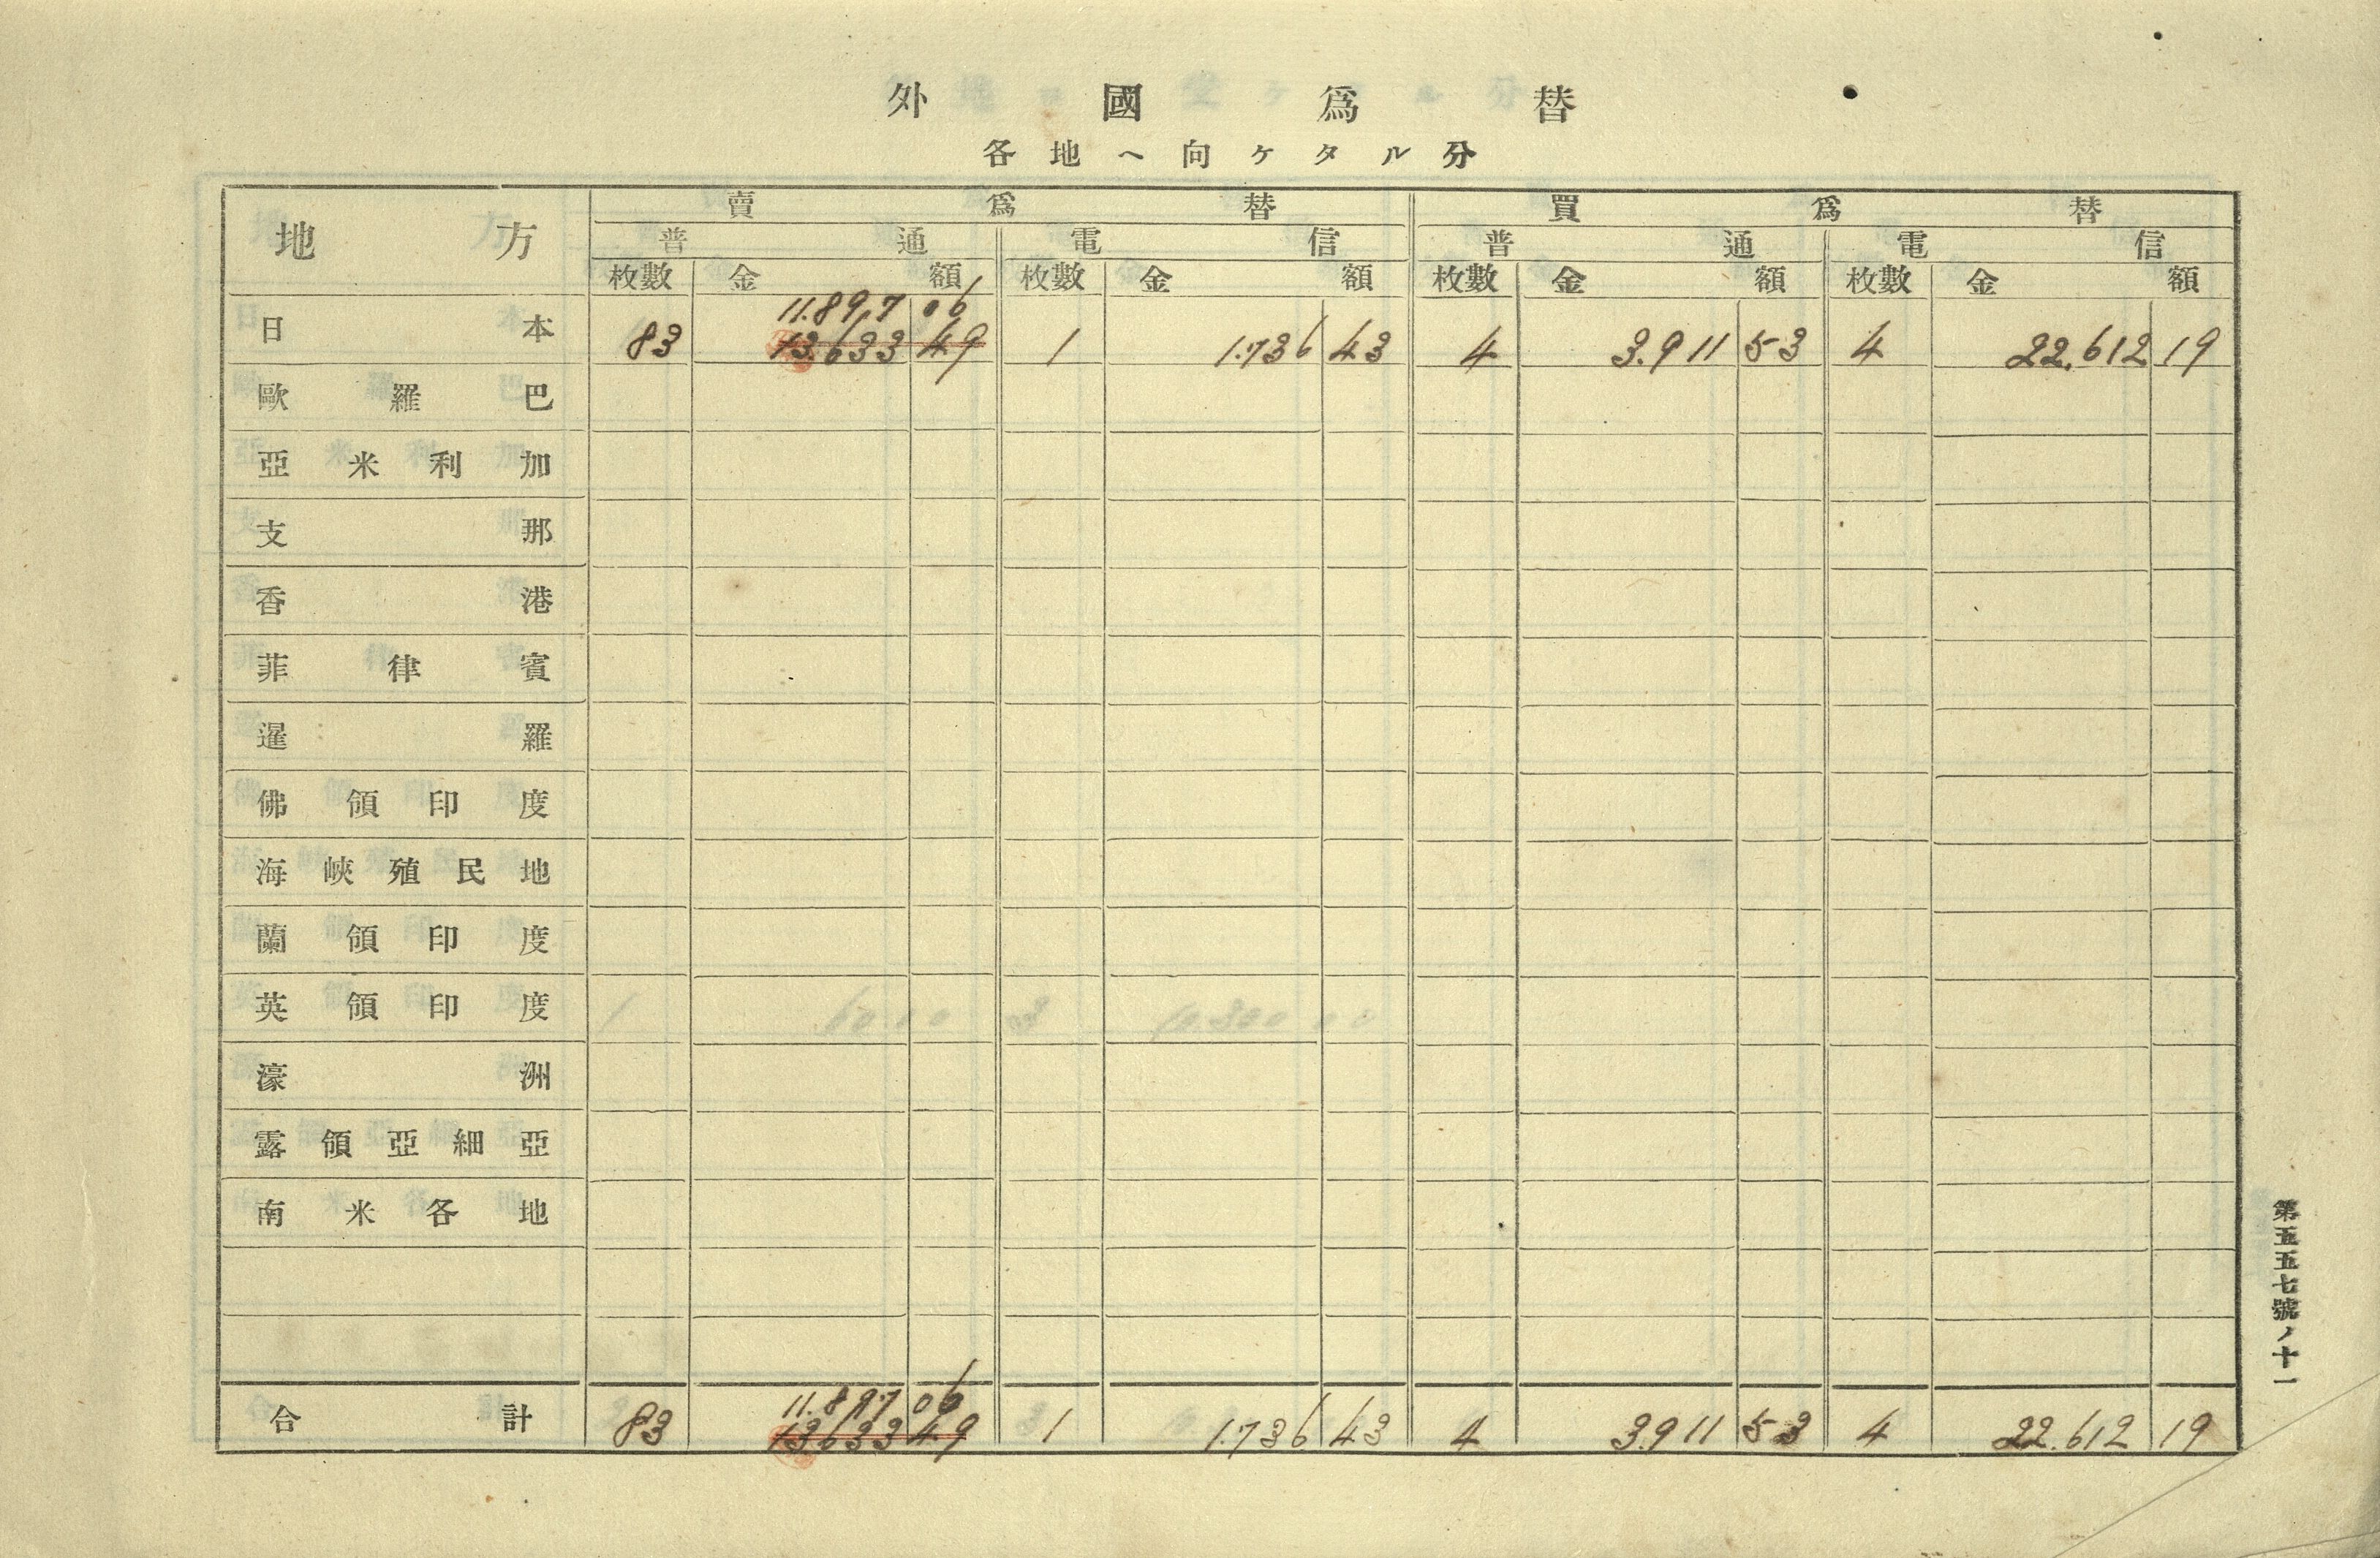 外國爲替
各地ヘ向ケタル分
地方 賣爲替 買爲替
普通 電信 普通 電信
枚數 金額 枚數 金額 枚數 金額 枚數 金額
11.897 06
日本 83 13.633 49 1 1.736 43 4 3.911 53 4 22.612 19
歐羅巴
亞米利加
支那
香港
菲律賓
暹羅
佛領印度
海峽殖民地
蘭領印度
英領印度
濠洲
露領亞細亞
南米各地
11.897 06
合計 83 13.633 49 1 1.736 43 4 3.911 53 4 22.612 19
第五五七號ノ十一